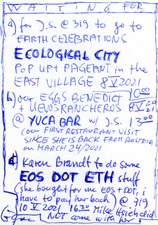 WAITING FOR
a) for J.S. @ 319 to go to
EARTH CELEBRATIONS
ECOLOGICAL CITY
POP UP! PAGEANT in the
EAST VILLAGE 8 V 2021
b) our EGGS BENEDICT
+ HUEVOS RANCHEROS
@ YUCA BAR w/ J.S. 13:00
(our FIRST RESTAURANT VISIT
SINCE SHE'S BACK FROM AUSTRIA
on MARCH 24/2021
c) Karen Brandt to do some
EOS DOT ETH stuff
(she bought for me EOS + DOT, i
have to pay her back @ 319
10 V 2021 16:30 Mike Hsieh did
NOT come with her